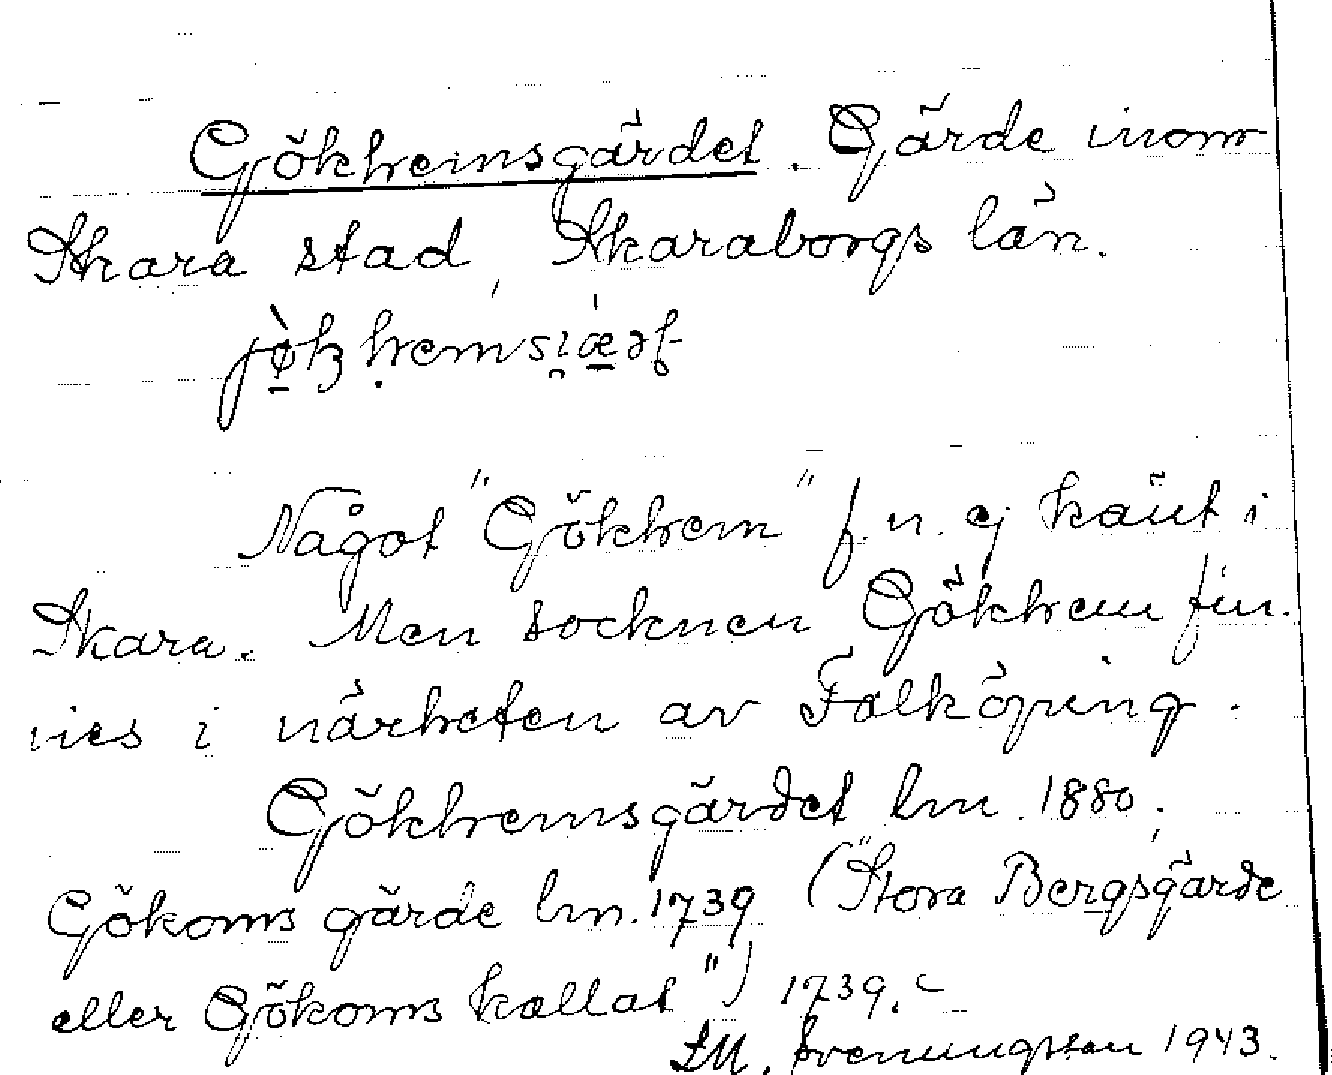 Gökhemsgärdet. Gärde inom
Skara stad, Skaraborgs län.
Något "Gökhem" f.n. ej känt i
Skara. Men socknen Gökhem fin-
nes i närheten av Falköping.
Gökhemsgärdet lm. 1880;
Gökoms gärde lm. 1739 ("Stora Bergsgärde
eller Gökoms kallat") 1739.-
Sveningsson 1943.